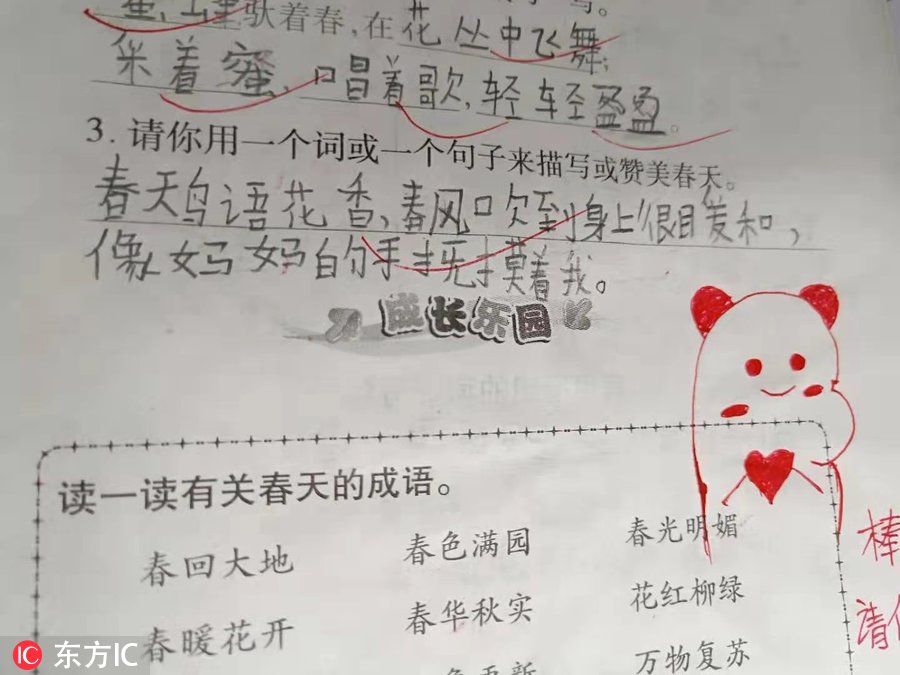 驮着春,在花丛中飞舞;
采着蜜,口昌着歌,轻轻盈盈。
3.请你用一个词或一个句子来描写或赞美春天。
春天鸟语花香,春风口欠至刂身上很目爰和,
像妈妈的手扌无扌莫着我。
成长乐园
读一读有关春天的成语。
春回大地 春色满园 春光明媚
春暖花开 春华秋实 花红柳绿
万物复苏
棒
请
东方IC